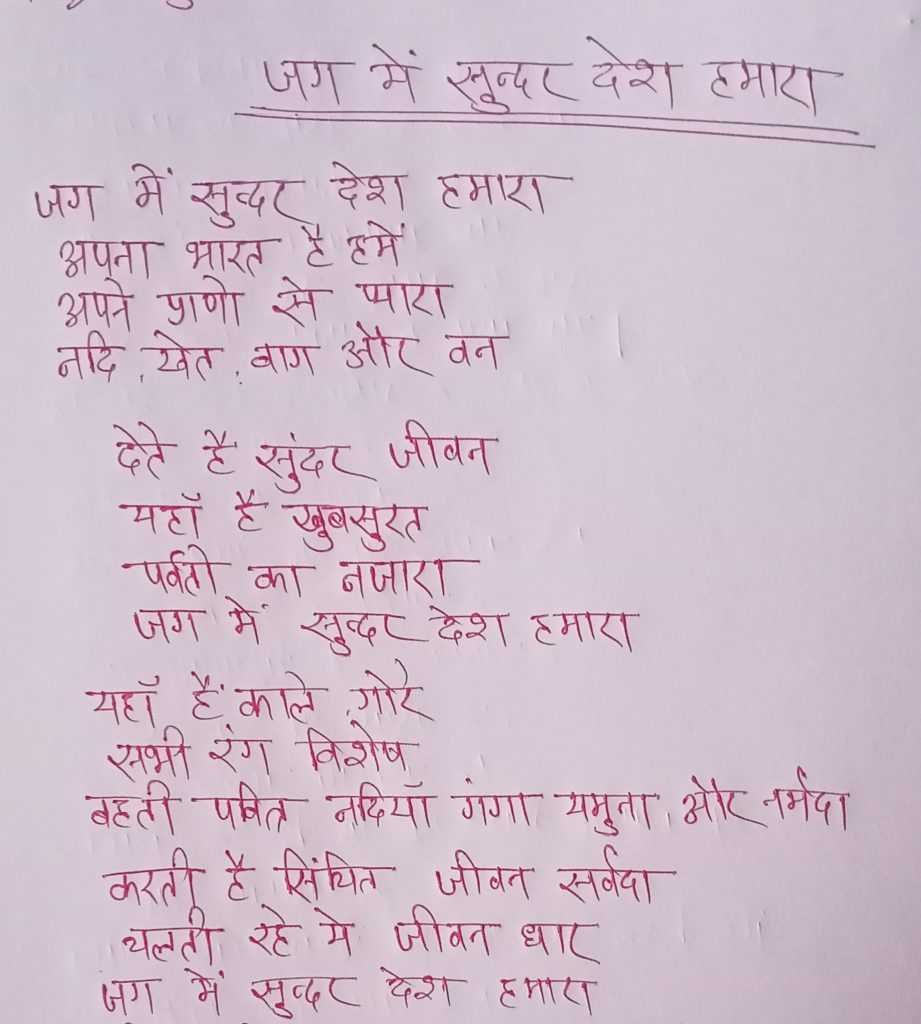 जग में सुन्दर देश हमारा
जग में सुन्दर देश हमारा
अपना भारत है हमें
अपने प्राणो से प्यारा
नदि, खेत, बाग और वन
देते है सुंदर जीवन
यहाँ है खुबसुरत
पर्वतो का नजारा
जग में सुन्दर देश हमारा
यहाँ हैं काले, गोरे
सभी रंग विशेष
बहती पवित्र नदियाँ गंगा यमुना, और नर्मदा
करती है सिंचित जीवन सर्वदा
चलती रहे ये जीवन धार
जग में सुन्दर देश हमारा